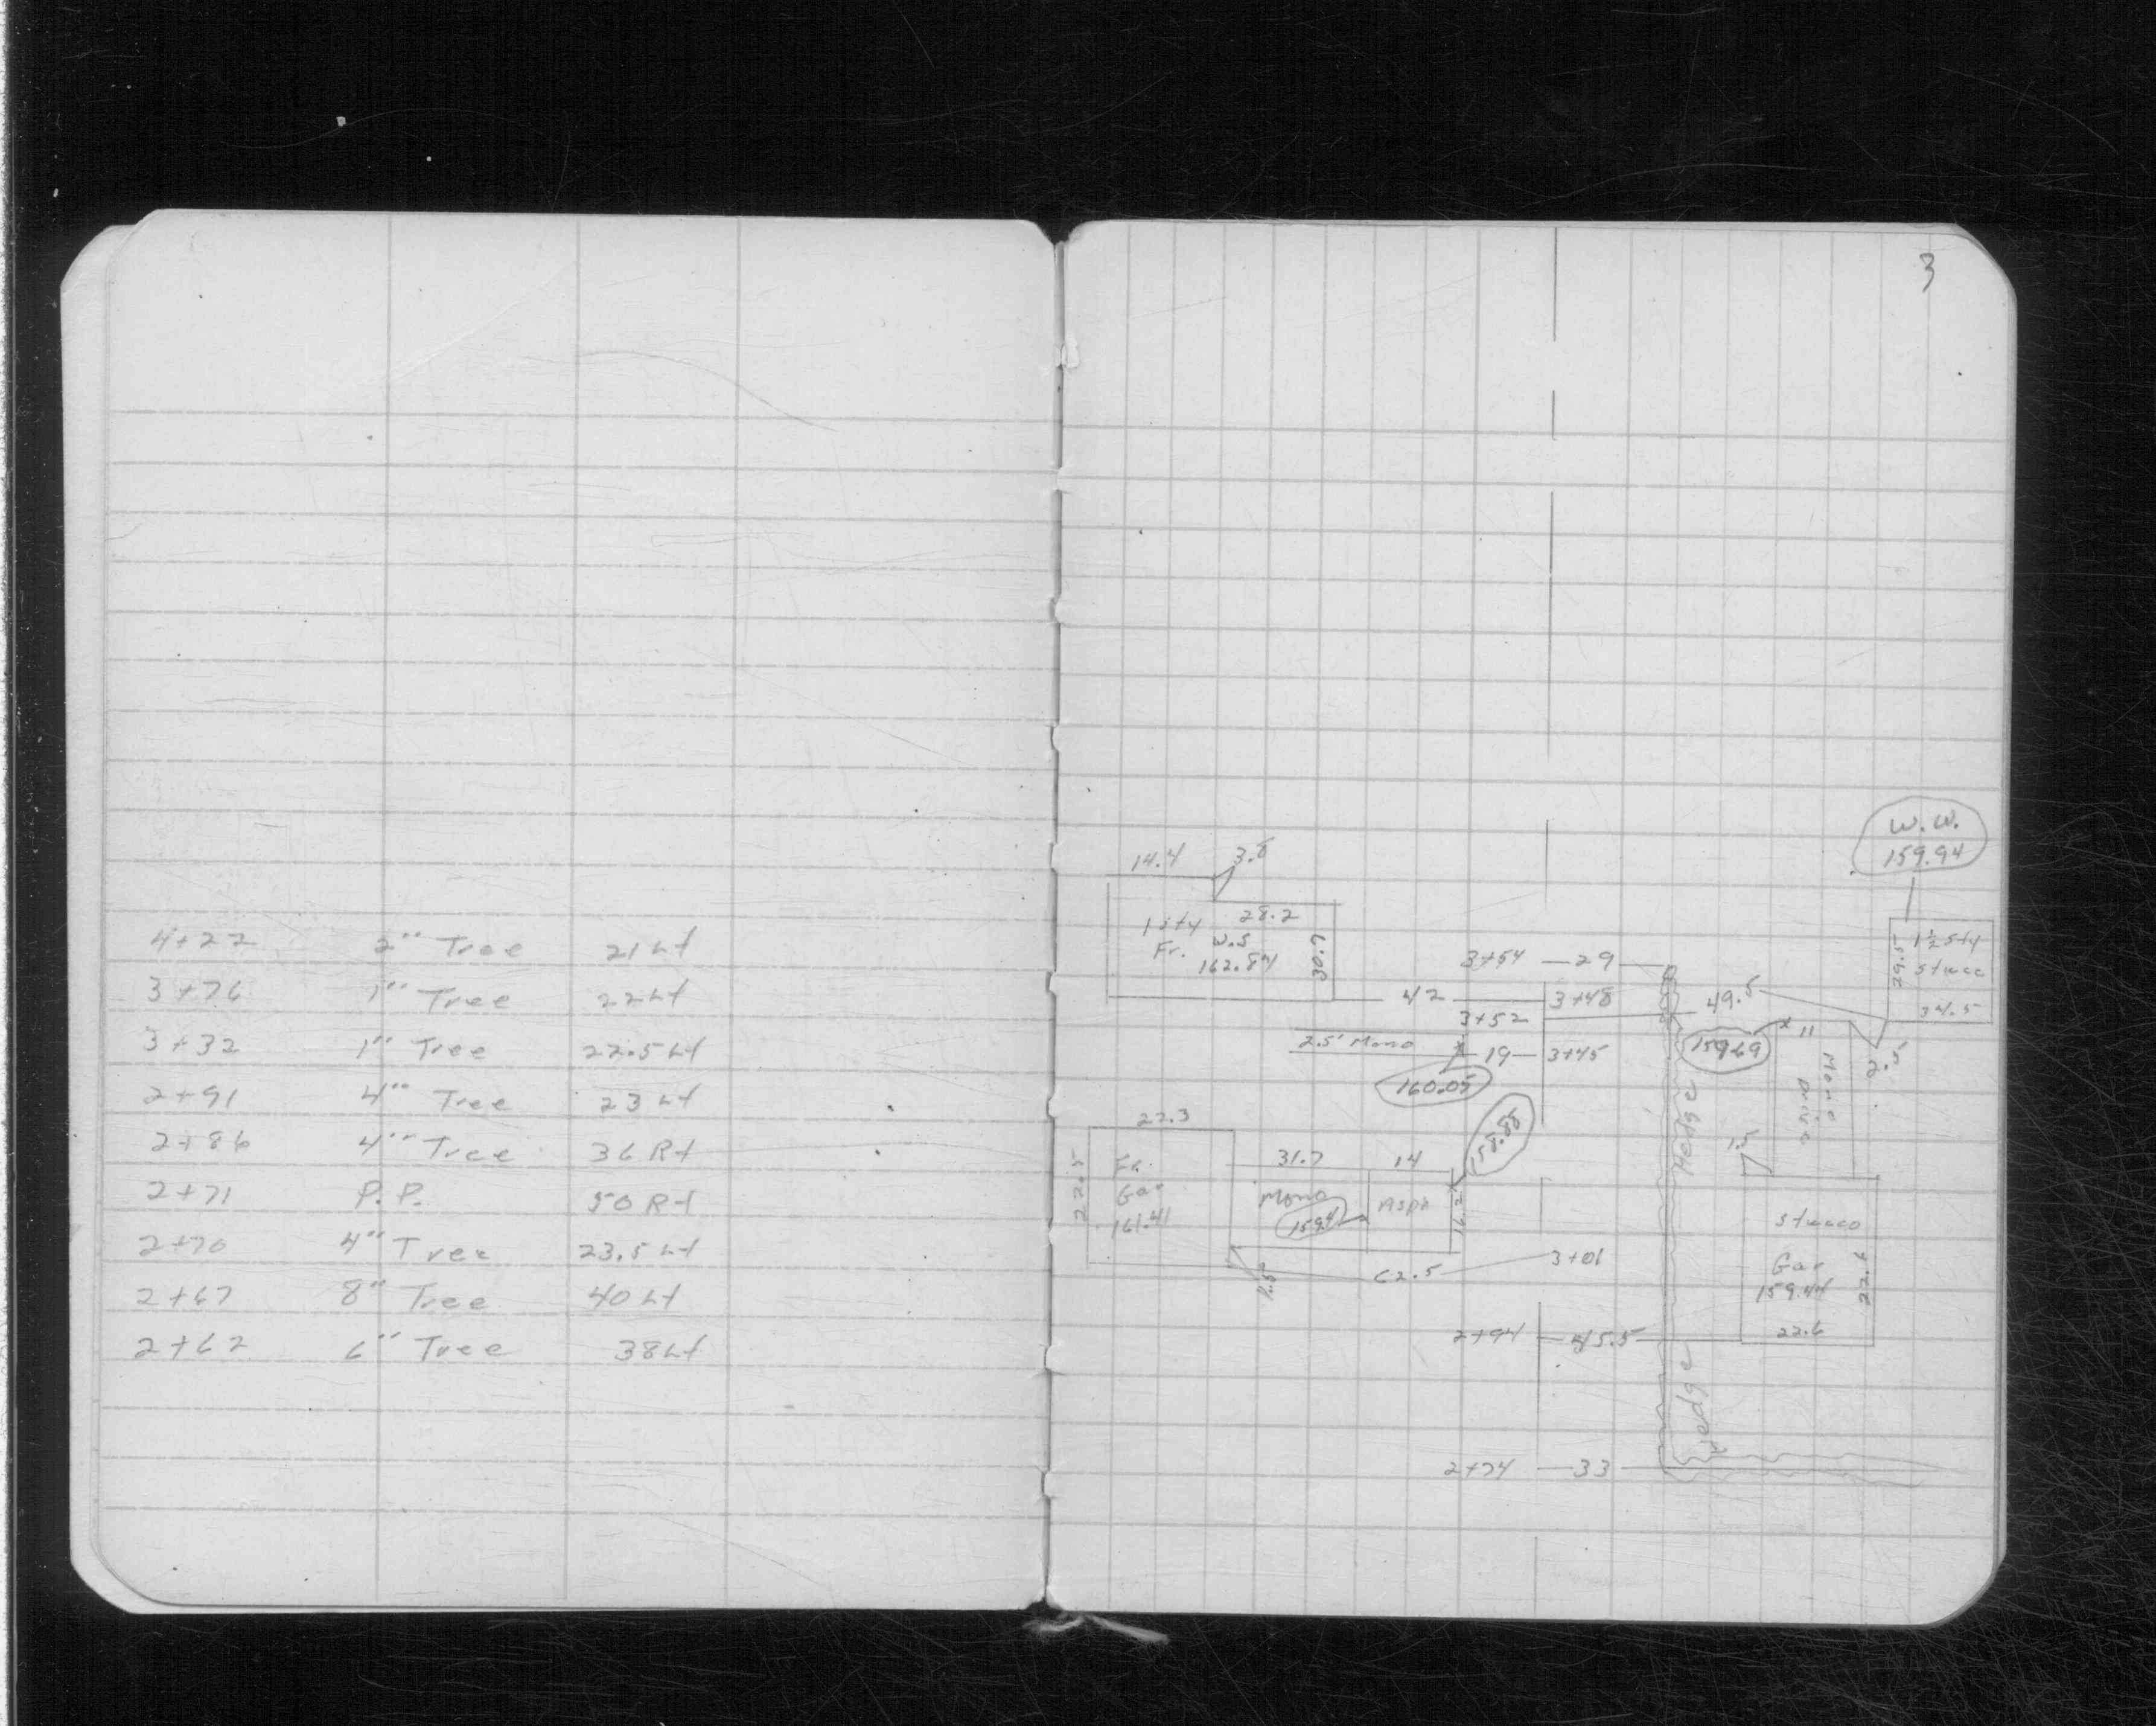 4+22 2" Tree 21 Lt
3+76 1" Tree 22 Lt
3+32 1" Tree 22.5 Lt
2+91 4" Tree 23 Lt
2+86 4" Tree 36 Rt
2+71 P.P. 50 Rt
2+70 4" Tree 23.5 Lt
2+67 8" Tree 40 Lt
2+62 6" Tree 38 Lt
3
W.W.
159.94
14.4 3.8
1 sty 28.2
Fr. W.S
162.84
30.7
3+54 29
1½ sty
Stucc
29.5
34.5
42 3+48 49.5
3+52
2.5' Mono 19 3+45
160.05
159.69
11
2.5'
Mono
Drive
Hedge
158.88
22.3
22.5
Fr.
Gar
161.41
31.7 14
Mono Asph
159.4
16.2
1.5
1.5
Stucco
Gar
159.44
22.6
62.5 3+01
2+94 45.5
Hedge
2+74 33